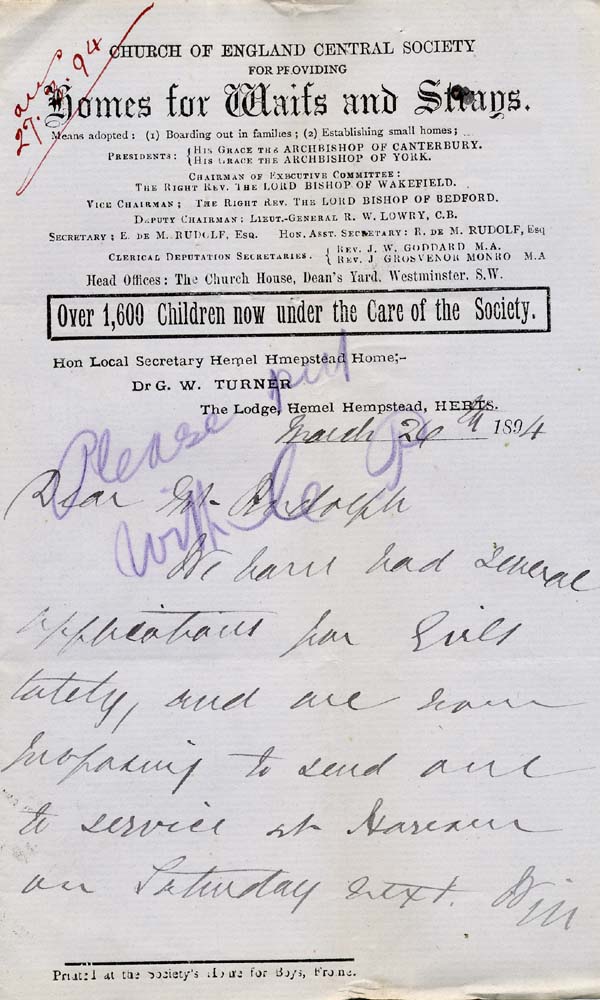 ans
27.3.94
CHURCH OF ENGLAND CENTRAL SOCIETY
FOR PROVIDING
Homes for Waifs and Strays.
Means adopted: (1) Boarding out in families; (2) Establishing small homes;
PRESIDENTS: { HIS GRACE THE ARCHBISHOP OF CANTERBURY.
{ HIS GRACE THE ARCHBISHOP OF YORK.
CHAIRMAN OF EXECUTIVE COMMITTEE:
THE RIGHT REV. THE LORD BISHOP OF WAKEFIELD.
VICE CHAIRMAN; THE RIGHT REV. THE LORD BISHOP OF BEDFORD.
DEPUTY CHAIRMAN: LIEUT.-GENERAL R. W. LOWRY, C.B.
SECRETARY; E. DE M. RUDOLF, ESQ. HON. ASST. SECRETARY: R. DE M. RUDOLF, ESQ
CLERICAL DEPUTATION SECRETARIES. { REV. J. W. GODDARD M.A.
{ REV. J GROSVENOR MONRO M.A
Head Offices: The Church House, Dean's Yard, Westminster, S.W.
Over 1,600 Children now under the Care of the Society.
Hon Local Secretary Hemel Hmepstead Home;-
Dr G. W. TURNER
The Lodge, Hemel Hempstead, HERTS.
March 26th 1894
Please put
with
Dear Mr Rudolph
We have had several
applications for Girls
lately, and are now
proposing to send one
to service at
on Saturday next. Will
Printed at the Society's Home for Boys, Frome.